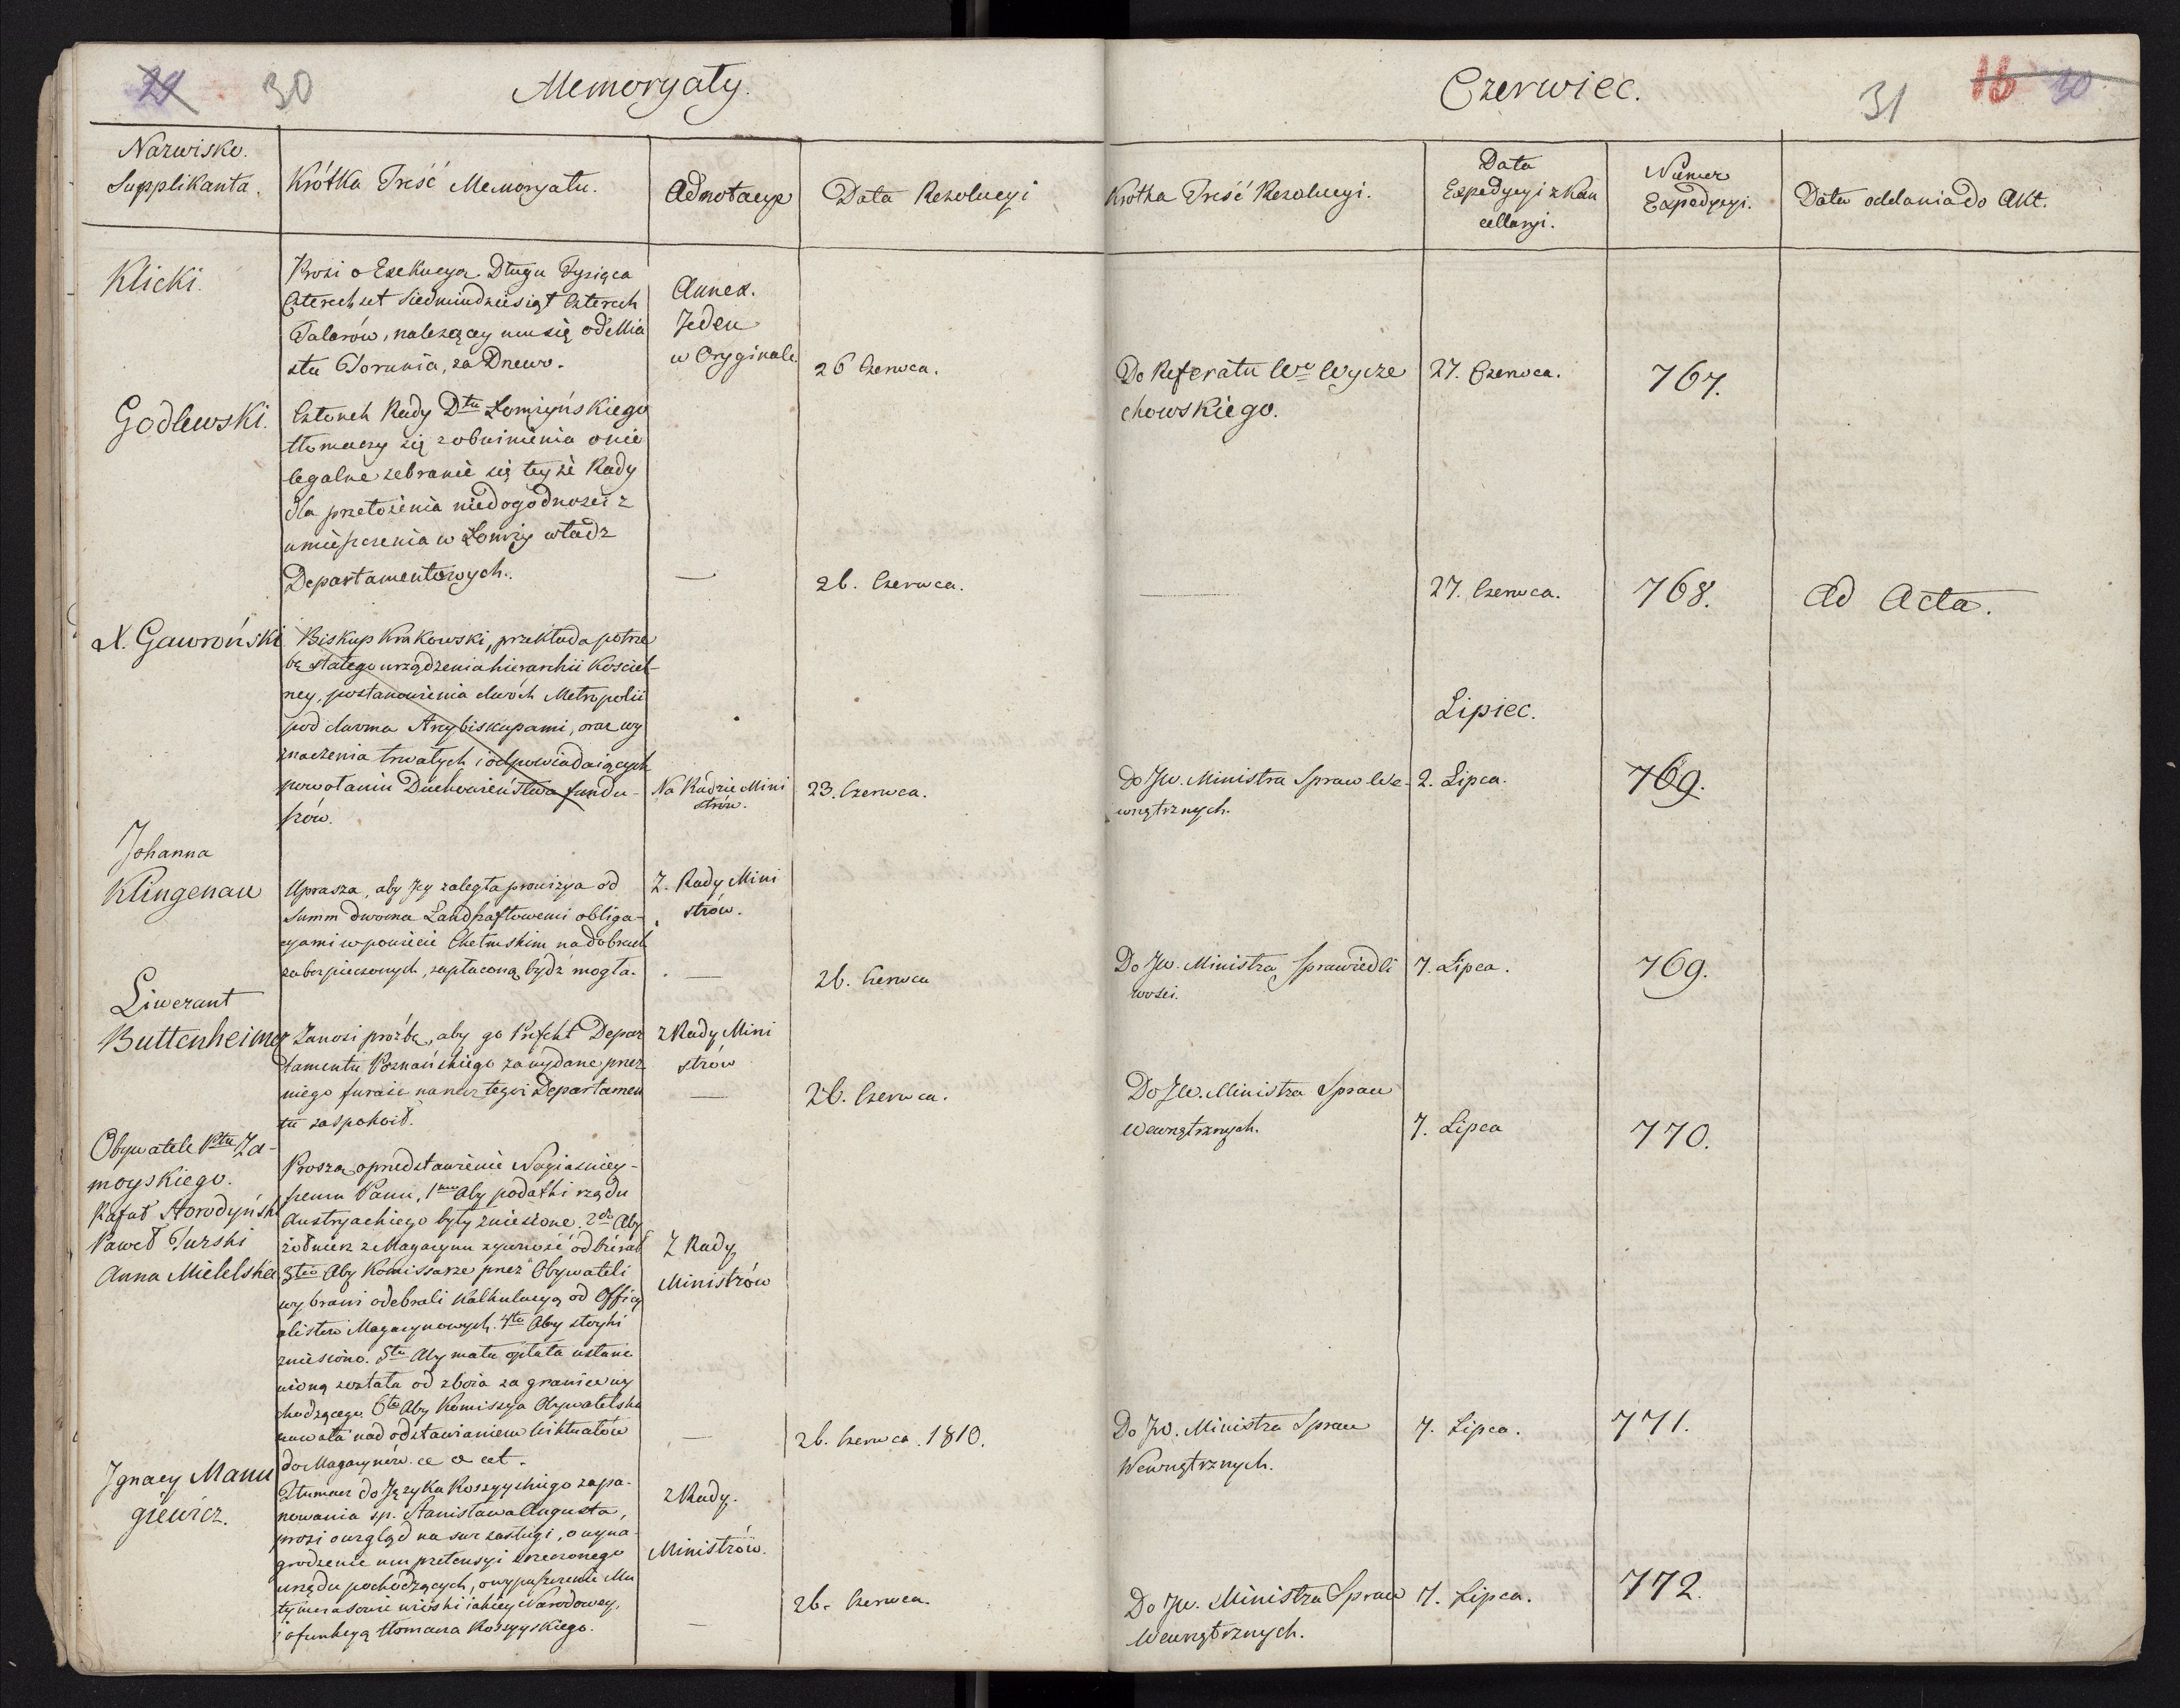 29 30
Memoryały.
Czerwiec.
31 16 30
Nazwisko.
Supplikanta.
Krótka Treść Memoryału.
Adnotacye
Data Rezolucyi
Krótka Treść Rezolucyi.
Data
Expedycyi z Kan
cellaryi.
Numer
Expedycyi.
Data oddania do Akt.
Klicki.
Prosi o Exekucyą Długu Tysiąca
Czterechset Siedmiudziesiąt Czterech
Talarów, należący mu się od Mia
sta Torunia, za Drzewo.
Annex.
Jeden
w Oryginale
26 Czerwca.
Do Referatu Wo Wycze
chowskiego.
27. Czerwca.
767.
Godlewski.
Członek Rady Dtu Łomżyńskiego
tłomaczy się z obwinienia o nie
legalne zebranie się teyże Rady
dla przełożenia niedogodności z
umieszczenia w Łomży władz
Departamentowych.
—
26. Czerwca.
—
27. Czerwca.
768.
Ad Acta.
X. Gawroński
Biskup Krakowski, przekłada potrze
bę stałego urządzenia hierarchii Kościel-
ney, postanowienia dwóch Metropolii
pod dwoma Arcybiskupami, oraz wy
znaczenia trwałych i odpowiadaiących
powołaniu Duchowieństwa fundu-
szów.
Na Radzie Mini
strów.
23. Czerwca.
Lipiec.
Do JW. Ministra Spraw We-
wnętrznych.
2. Lipca.
769.
Johanna
Klingenau
Uprasza, aby Jey zaległa prowizya od
Summ dwoma Landszaftowemi obliga-
cyami w powiecie Chełmskim na dobrach
zabezpieczonych, zapłaconą bydź mogła.
Z. Rady Mini
strów.
—
26. Czerwca
Do JW. Ministra Sprawiedli
wości.
7. Lipca.
769.
Liwerant
Buttenheimer
Zanosi prośbę, aby go Prefekt Depar
tamentu Poznańskiego za wydane przez
niego furaże na rzecz tegoż Departamen
tu zaspokoił.
z Rady Mini
strów
—
26. Czerwca.
Do JW. Ministra Spraw
Wewnętrznych.
7. Lipca
770.
Obywatele Pttu Za-
moyskiego.
Rafał Horodyński
Paweł Turski
Anna Mielelska
Proszą o przedstawienie Nayiaśniey-
szemu Panu, 1mo Aby podatki rządu
Austryackiego były zniesione. 2do Aby
żołnierz z Magazynu żywność odbierał
3tio Aby Komissarze przez Obywateli
wybrani odebrali Kalkulacyą od Offícy
alistów Magazynowych. 4to Aby stoyki
zniesiono. 5to Aby mała opłata ustano
wioną została od zboża za granicę wy
chodzącego. 6to Aby Komissya Obywatelska
czuwała nad odstawianiem wiktuałów
do Magazynów. ec e cet.
Z Rady
Ministrów
—
26. Czerwca. 1810.
Do JW. Ministra Spraw
Wewnętrznych.
7. Lipca.
771.
Ignacy Manu
giewicz.
Tłumacz do Języka Rossyyskiego za pa-
nowania sp. Stanisława Augusta,
prosi o wzgląd na swe zasługi, o wyna-
grodzenie mu pretensyi z rzeczonego
urzędu pochodzących, o wypuszczenie Mu
tymczasowie wioski iakiey Narodowey,
i o funkcyą tłomacza Rossyyskiego.
z Rady.
Ministrów.
—
26. Czerwca.
Do JW. Ministra Spraw
Wewnętrznych.
7. Lipca.
772.